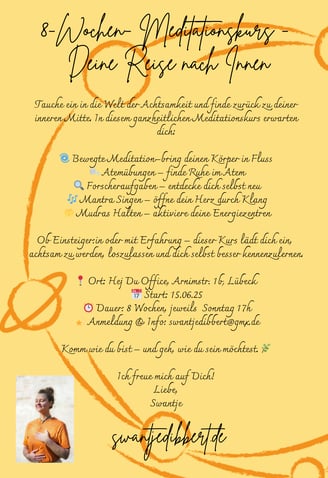 8-Wochen- Meditationskurs -
Deine Reise nach Innen
Tauche ein in die Welt der Achtsamkeit und finde zurück zu deiner
inneren Mitte. In diesem ganzheitlichen Meditationskurs erwarten
dich:
🌀 Bewegte Meditation – bring deinen Körper in Fluss
🌬️ Atemübungen – finde Ruhe im Atem
🔍 Forscheraufgaben – entdecke dich selbst neu
🎶 Mantra Singen – öffne dein Herz durch Klang
🤲 Mudras Halten – aktiviere deine Energiezentren
Ob Einsteiger:in oder mit Erfahrung – dieser Kurs lädt dich ein,
achtsam zu werden, loszulassen und dich selbst besser kennenzulernen.
📍 Ort: Hej Du Office, Arnimstr. 1b, Lübeck
📅 Start: 15.06.25
🕒 Dauer: 8 Wochen, jeweils Sonntag 17h
✨ Anmeldung & Info: swantjedibbert@gmx.de
Komm wie du bist – und geh, wie du sein möchtest. 🌿
Ich freue mich auf Dich!
Liebe,
Swantje
swantjedibbert.de